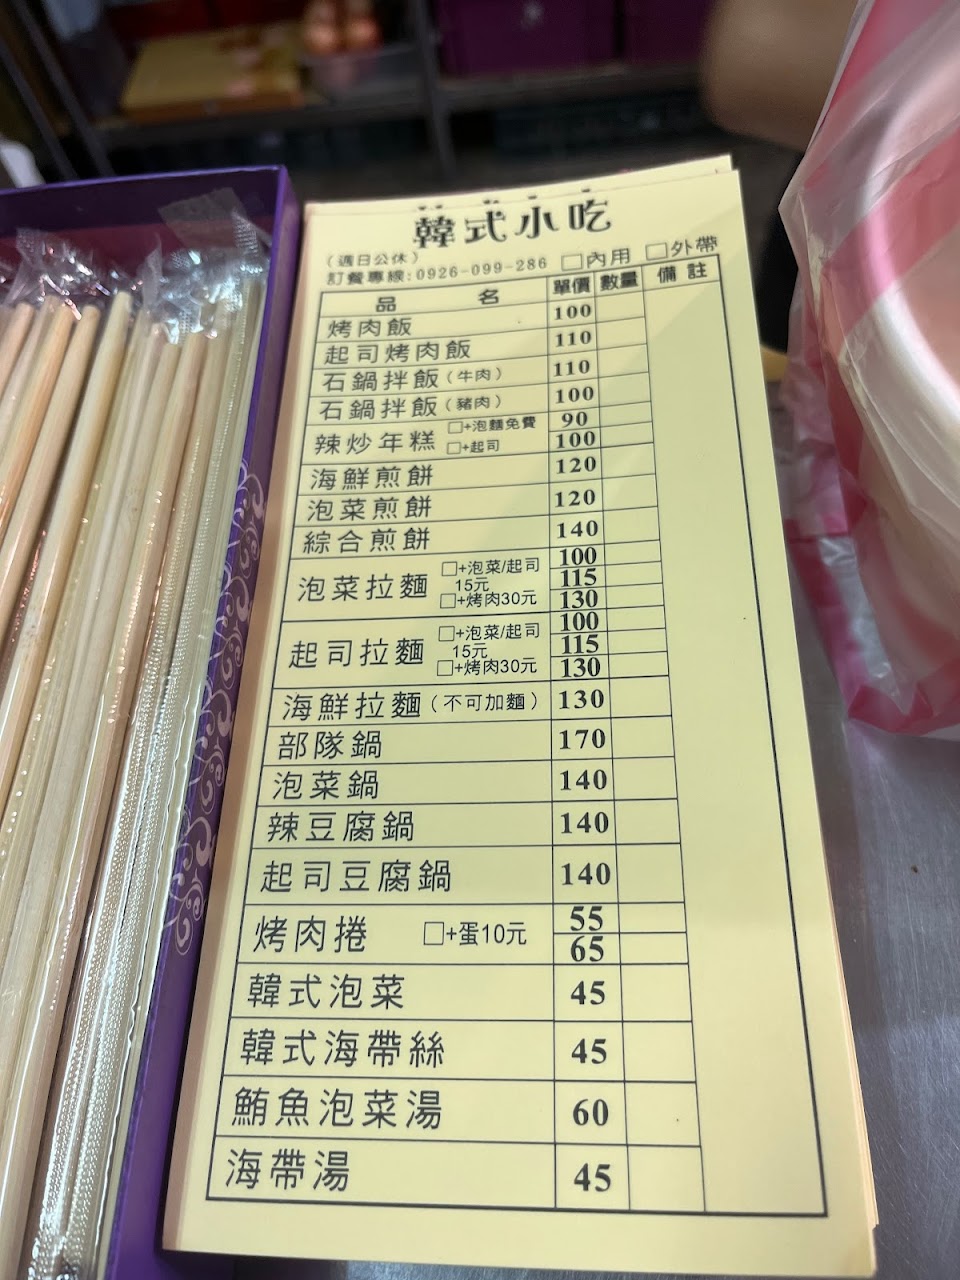 韓式小吃
(週日公休)
訂餐專線:0926-099-286 □內用 □外帶
品名 單價 數量 備註
烤肉飯 100
起司烤肉飯 110
石鍋拌飯(牛肉) 110
石鍋拌飯(豬肉) 100
辣炒年糕 □+泡麵免費 90
□+起司 100
海鮮煎餅 120
泡菜煎餅 120
綜合煎餅 140
泡菜拉麵 □+泡菜/起司 100
15元 115
□+烤肉30元 130
起司拉麵 □+泡菜/起司 100
15元 115
□+烤肉30元 130
海鮮拉麵(不可加麵) 130
部隊鍋 170
泡菜鍋 140
辣豆腐鍋 140
起司豆腐鍋 140
烤肉捲 □+蛋10元 55
65
韓式泡菜 45
韓式海帶絲 45
鮪魚泡菜湯 60
海帶湯 45